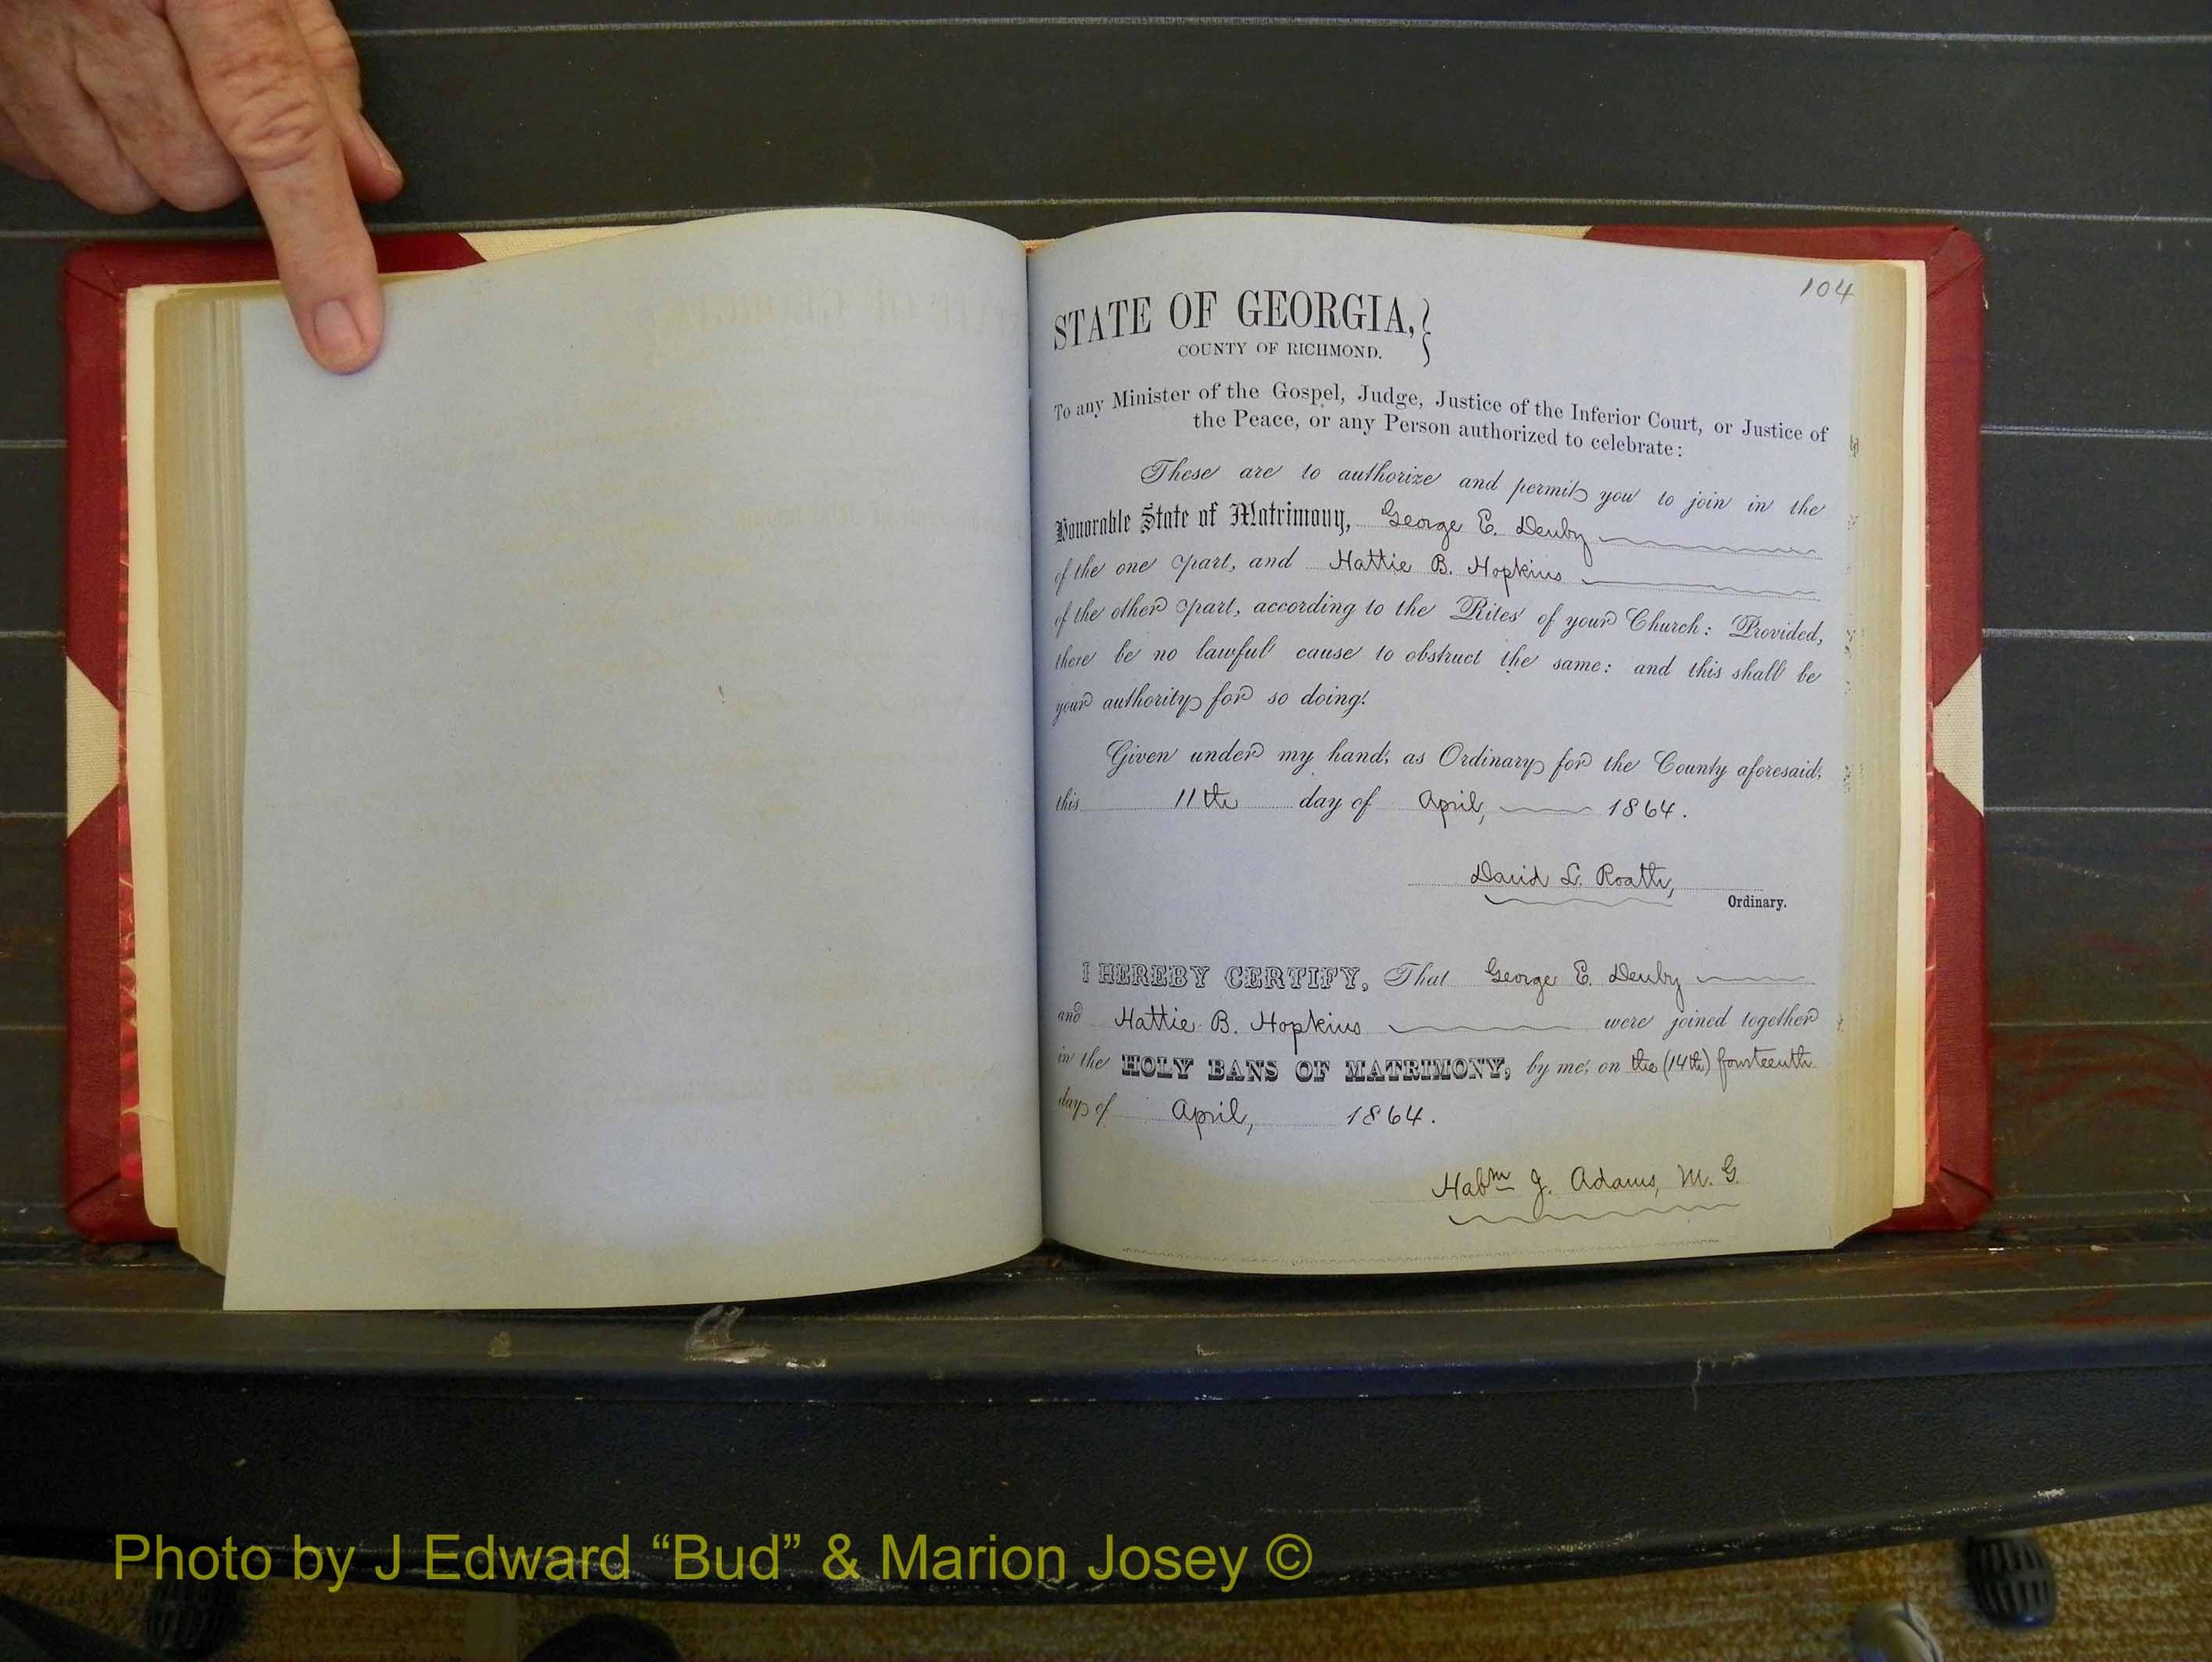 104
STATE OF GEORGIA,
COUNTY OF RICHMOND.
To any Minister of the Gospel, Judge, Justice of the Inferior Court, or Justice of
the Peace, or any Person authorized to celebrate:
These are to authorize and permit you to join in the
Honorable State of Matrimony, George E. Denby
of the one part, and Hattie B. Hopkins
of the other part, according to the Rites of your Church: Provided,
there be no lawful cause to obstruct the same: and this shall be
your authority for so doing.
Given under my hand, as Ordinary for the County aforesaid,
this 11th day of April, 1864.
David L. Roath,
Ordinary.
I HEREBY CERTIFY, That George E. Denby
and Hattie B. Hopkins were joined together
in the HOLY BANS OF MATRIMONY, by me, on the (14th) fourteenth
day of April, 1864.
Habm J. Adams, M. G.
Photo by J Edward “Bud” & Marion Josey ©